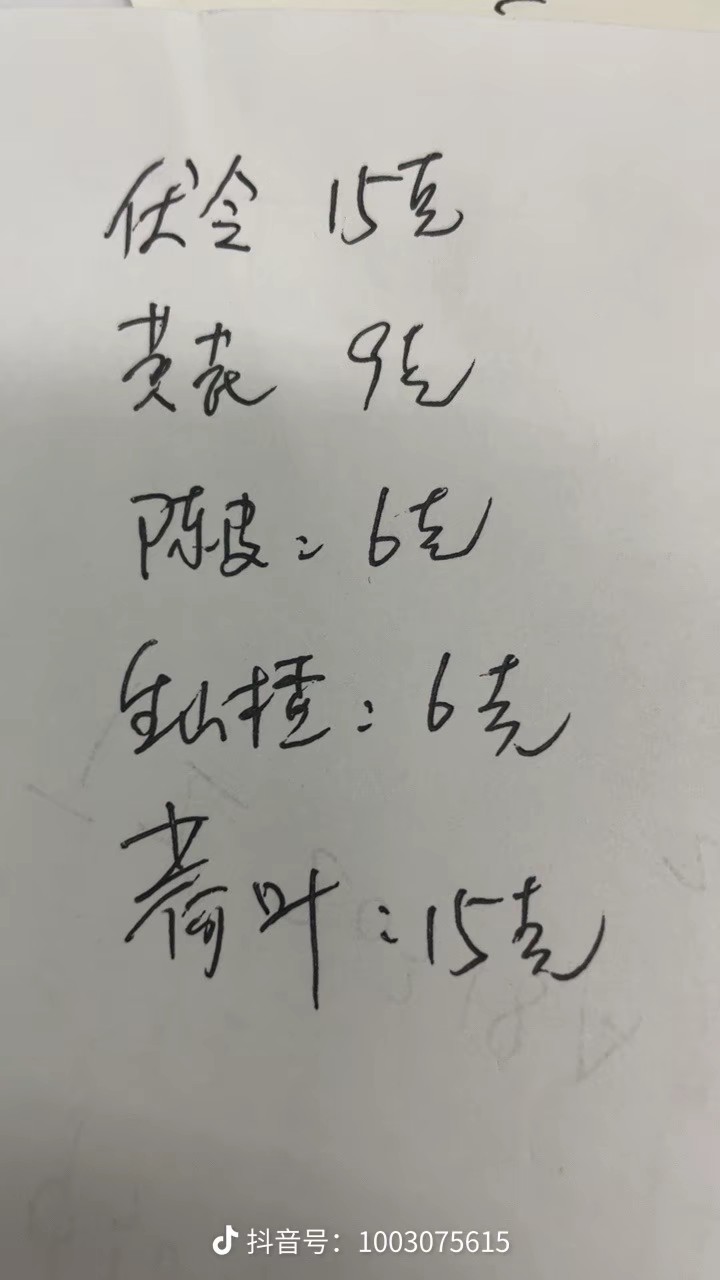 伏令 15克
黄芪 9克
陈皮: 6克
生山楂: 6克
荷叶: 15克
抖音号: 1003075615